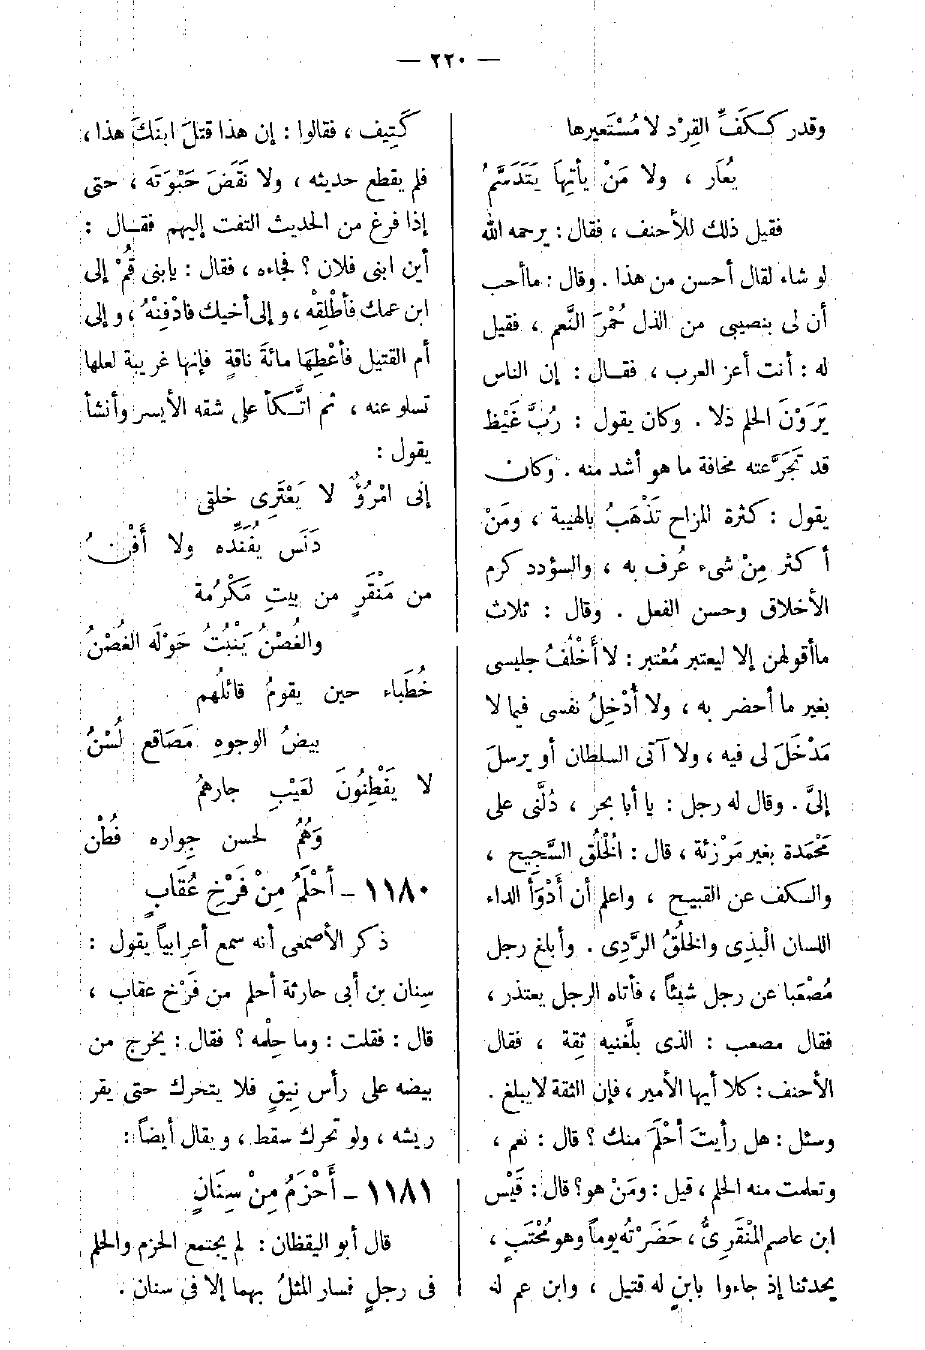 — ٢٢٠ —
وقدر ككَفِّ القِرْد لا مُسْتَعيرها
يُعَار ، ولا مَنْ يأتِهَا يَتَدَسَّمُ
فقيل ذلك للأحنف ، فقال : يرحمه الله
لو شاء لقال أحسن من هذا . وقال : ماأحب
أن لى بنصيبى من الذل حُمْرَ النَّعم ، فقيل
له : أنت أعز العرب ، فقال : إن الناس
يَرَوْنَ الحلم ذلا . وكان يقول : رُبَّ غَيْظ
قد تَجَرَّعته مخافة ما هو أشد منه . وكان
يقول : كثرة المزاح تَذْهَبُ بالهيبة ، ومَنْ
أكثر مِنْ شىء عُرف به ، والسؤدد كرم
الأخلاق وحسن الفعل . وقال : ثلاث
ماأقولهن إلا ليعتبر مُعْتبر : لا أَخْلُفُ جليسى
بغير ما أحضر به ، ولا أُدْخِلُ نفسى فيما لا
مَدْخَلَ لى فيه ، ولا آتى السلطان أو يرسلَ
إلىَّ . وقال له رجل : يا أبا بحر ، دُلَّنى على
مَحْمَدة بغير مَرْزئة ، قال : الْخُلُق السَّجِيح ،
والكف عن القبيح ، واعلم أن أَدْوَأَ الداء
اللسان الْبذِى والخلُقُ الرَّدِى . وأبلغ رجل
مُصْعَبا عن رجل شيئاً ، فأتاه الرجل يعتذر ،
فقال مصعب : الذى بلَّغنيه ثِقة ، فقال
الأحنف : كلا أيها الأمير ، فإن الثقة لا يبلغ .
وسئل : هل رأيتَ أحْلَمَ منك ؟ قال : نعم ،
وتعلمت منه الحلم ، قيل : ومَنْ هو؟ قال : قَيْس
ابن عاصم المْنقَرِىُّ ، حَضَرْتُه يوماً وهو مُحْتَبٍ ،
يحدثنا إذ جاءوا بابنٍ له قتيل ، وابن عم له
كَتِيف ، فقالوا : إن هذا قتلَ ابنَكَ هذا ،
فلم يقطع حديثه ، ولا نَقَضَ حَبْوَتَه ، حتى
إذا فرغ من الحديث التفت إليهم فقال :
أين ابنى فلان ؟ فجاءه ، فقال : يابنى قُمْ إلى
ابن عمك فأطْلِقْه ، وإلى أخيك فادْفِنْهُ ، وإلى
أم القتيل فأعْطِهَا مائةَ ناقةٍ فإنها غريبة لعلها
تسلو عنه ، ثم اتَّكأ على شقه الأيسر وأنشأ
يقول :
إنى امْرُؤٌ لا يَعْتَرِى خلقى
دَنَس يُفَنِّده ولا أَفْنُ
من مَنْقَرٍ من بيتِ مَكْرُمة
والغُصْنُ يَنْبُتُ حَوْلَه الغُصْنُ
خُطَباء حين يقومُ قائلُهم
بيضُ الوجوهِ مَصَاقع لُسْنُ
لا يَفْطِنُونَ لعَيْبِ جارهمُ
وَهُمُ لحسن جِواره فُطْن
١١٨٠ – أَحْلَمُ مِنْ فَرْخِ عُقَابٍ
ذكر الأصمعى أنه سمع أعرابياً يقول :
سِنان بن أبى حارثة أحلم من فَرْخ عقاب ،
قال : فقلت : وما حِلْمه ؟ فقال : يخرج من
بيضه على رأس نِيقٍ فلا يتحرك حتى يقر
ريشه ، ولو تحرك سقط ، ويقال أيضاً :
١١٨١ – أَحْزَمُ مِنْ سِنَانٍ
قال أبو اليقظان : لم يجتمع الحزم والحلم
فى رجلٍ فسار المثلُ بهما إلا فى سنان .